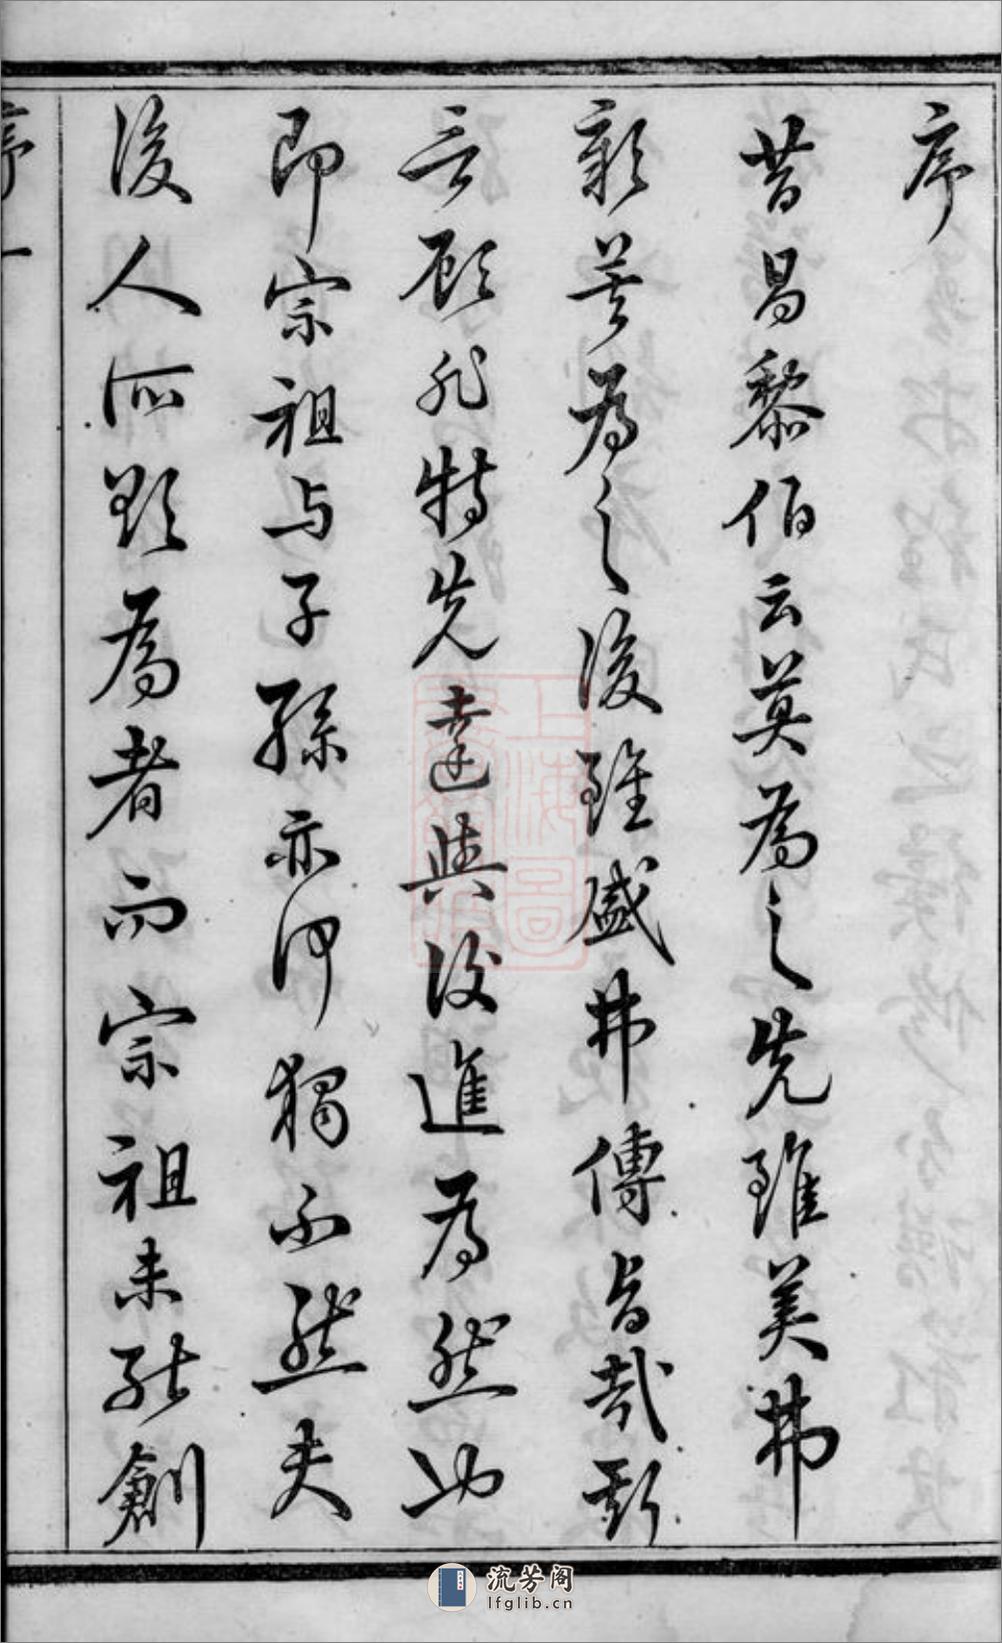 序
昔昌黎伯云莫為之先雖美弗
彰莫為之後雖盛弗傳旨哉斯
言顧非特先達與後進為然也
即宗祖与子孫亦何獨不然夫
後人所欲為者而宗祖未能創
序 一
上海圖
流芳阁
lfglib.cn